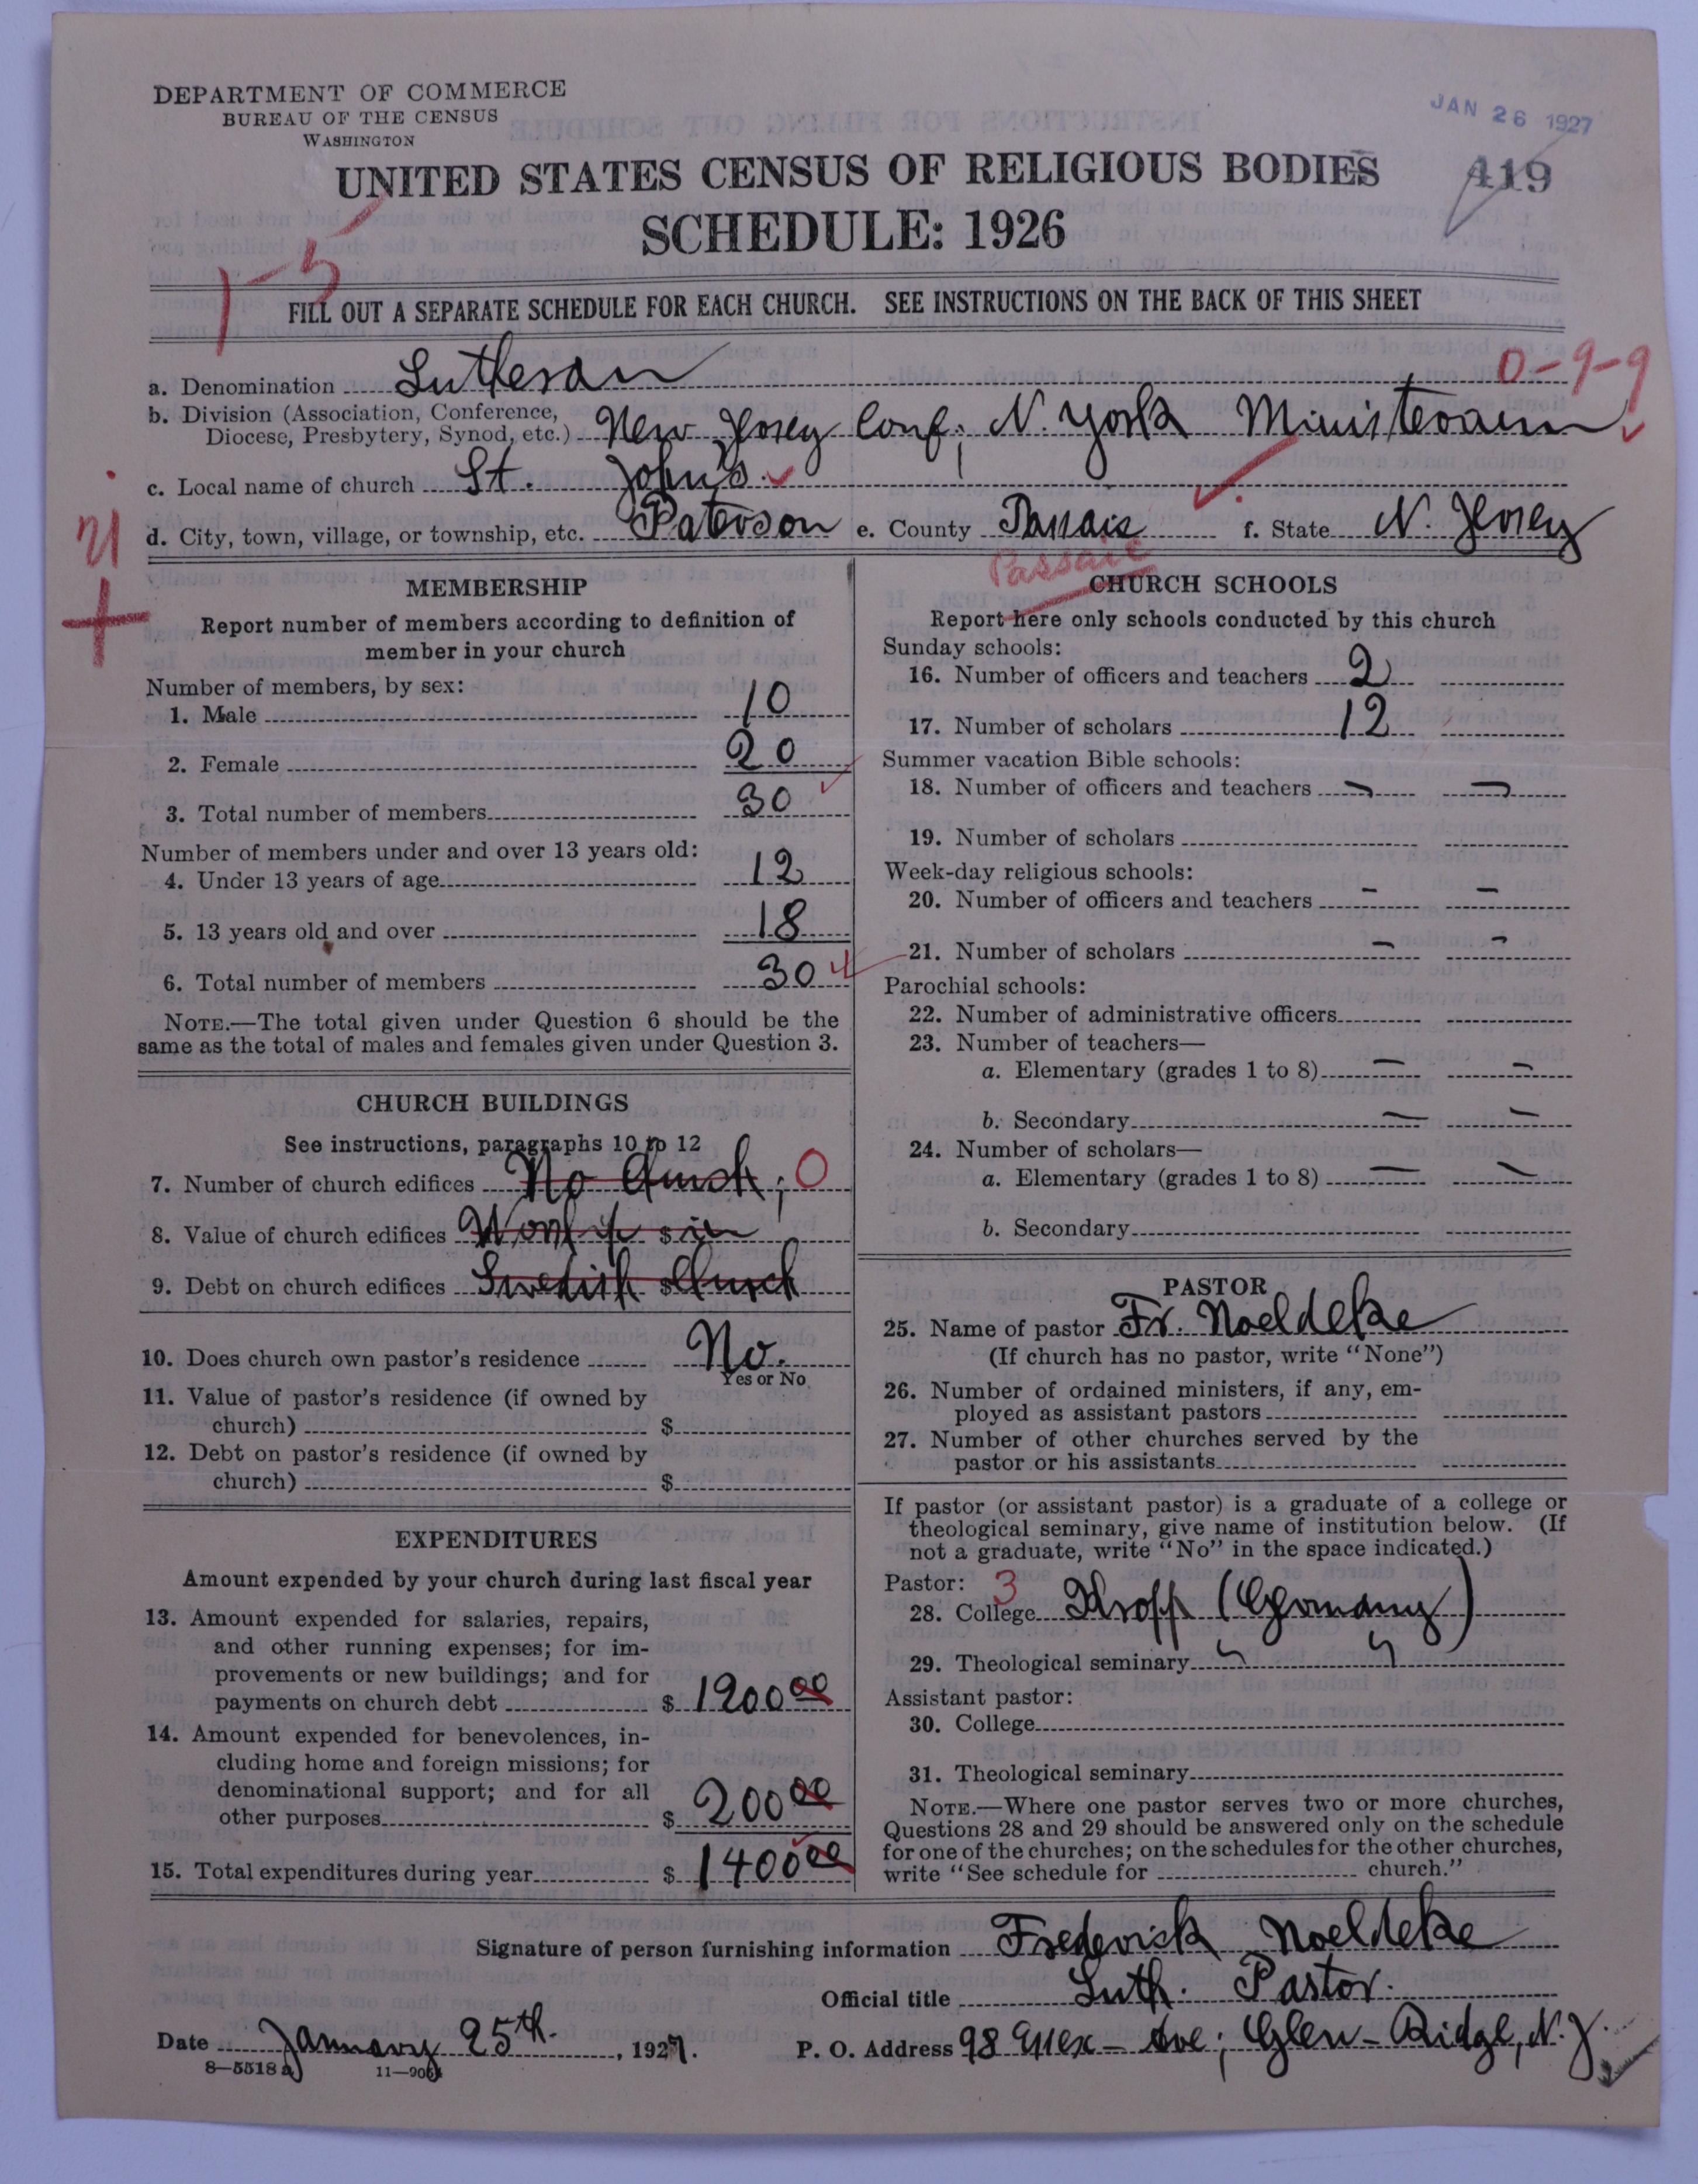 DEPARTMENT OF COMMERCE
BUREAU OF THE CENSUS
WASHINGTON
JAN 26 1927
UNITED STATES CENSUS OF RELIGIOUS BODIES
419
SCHEDULE: 1926
1-5
FILL OUT A SEPARATE SCHEDULE FOR EACH CHURCH. SEE INSTRUCTIONS ON THE BACK OF THIS SHEET
0-9-9
a. Denomination Lutheran
b. Division (Association, Conference,
Diocese, Presbytery, Synod, etc.) New Jersey Conf; N. York Ministerium
c. Local name of church St. John's
d. City, town, village, or township, etc. Paterson e. County Passaic f. State N. Jersey
Passaic
MEMBERSHIP
Report number of members according to definition of
member in your church
Number of members, by sex:
1. Male 10
2. Female 20
3. Total number of members 30
Number of members under and over 13 years old:
4. Under 13 years of age 12
5. 13 years old and over 18
6. Total number of members 30
NOTE.—The total given under Question 6 should be the
same as the total of males and females given under Question 3.
CHURCH BUILDINGS
See instructions, paragraphs 10 to 12
7. Number of church edifices No church; 0
8. Value of church edifices Worship $ in
9. Debt on church edifices Swedish $ Church
10. Does church own pastor's residence No.
Yes or No
11. Value of pastor's residence (if owned by
church) $
12. Debt on pastor's residence (if owned by
church) $
EXPENDITURES
Amount expended by your church during last fiscal year
13. Amount expended for salaries, repairs,
and other running expenses; for im-
provements or new buildings; and for
payments on church debt $ 1200 00
14. Amount expended for benevolences, in-
cluding home and foreign missions; for
denominational support; and for all
other purposes $ 200 00
15. Total expenditures during year $ 1400 00
CHURCH SCHOOLS
Report here only schools conducted by this church
Sunday schools:
16. Number of officers and teachers 2
17. Number of scholars 12
Summer vacation Bible schools:
18. Number of officers and teachers — —
19. Number of scholars
Week-day religious schools:
20. Number of officers and teachers — —
21. Number of scholars — —
Parochial schools:
22. Number of administrative officers
23. Number of teachers—
a. Elementary (grades 1 to 8) — —
b. Secondary — —
24. Number of scholars—
a. Elementary (grades 1 to 8) — —
b. Secondary
PASTOR
25. Name of pastor Fr. Noeldeke
(If church has no pastor, write "None")
26. Number of ordained ministers, if any, em-
ployed as assistant pastors
27. Number of other churches served by the
pastor or his assistants
If pastor (or assistant pastor) is a graduate of a college or
theological seminary, give name of institution below. (If
not a graduate, write "No" in the space indicated.)
Pastor: 3
28. College Kropp (Germany)
29. Theological seminary " "
Assistant pastor:
30. College
31. Theological seminary
NOTE.—Where one pastor serves two or more churches,
Questions 28 and 29 should be answered only on the schedule
for one of the churches; on the schedules for the other churches,
write "See schedule for church."
Signature of person furnishing information Frederick Noeldeke
Official title Luth. Pastor.
Date January 25th. , 1927. P. O. Address 98 Essex-Ave; Glen-Ridge, N. J.
8—5518 a 11—906